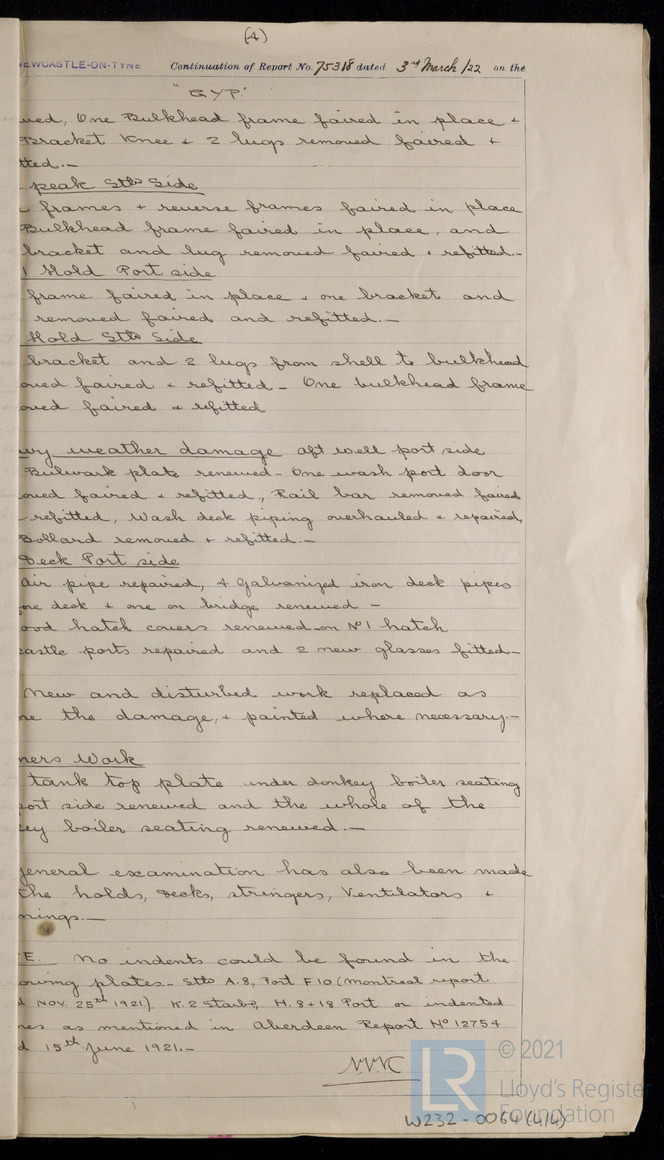 (4)
NEWCASTLE-ON-TYNE Continuation of Report No. 75318 dated 3rd March /22 on the
"GYP."
ved, One Bulkhead frame faired in place +
Bracket Knee + 2 lugs removed faired +
tted.-
peak Stbd Side
frames + reverse frames faired in place
Bulkhead frame faired in place, and
bracket and lug removed faired + refitted.-
1 Hold Port side
frame faired in place + one bracket and
removed faired and refitted.-
Hold Stbd Side
bracket and 2 lugs from shell to bulkhead
oved faired + refitted - One bulkhead frame
oved faired + refitted
vy weather damage aft well port side
Bulwark plate renewed - One wash port door
oved faired + refitted, Rail bar removed faired
refitted, Wash deck piping overhauled + repaired,
Bollard removed + refitted.-
Deck Port side
Air pipe repaired, 4 Galvanized iron deck pipes
ore deck + one on bridge renewed -
ood hatch covers renewed on No 1 hatch
castle ports repaired and 2 new glasses fitted-
New and disturbed work replaced as
re the damage, + painted where necessary.-
ners Work
tank top plate under donkey boiler seating
port side renewed and the whole of the
ey boiler seating renewed.-
general examination has also been made
the holds, Decks, stringers, Ventilators +
nings.-
E. No indents could be found in the
owing plates.- Stbd A.8, Port F10 (Montreal report
d Nov. 25th 1921) K.2 Starbd, H.8+18 Port or indented
nes as mentioned in Aberdeen Report No 12754
d 15th June 1921.-
© 2021
Lloyd's Register
Foundation
W232-0064 (4/4)